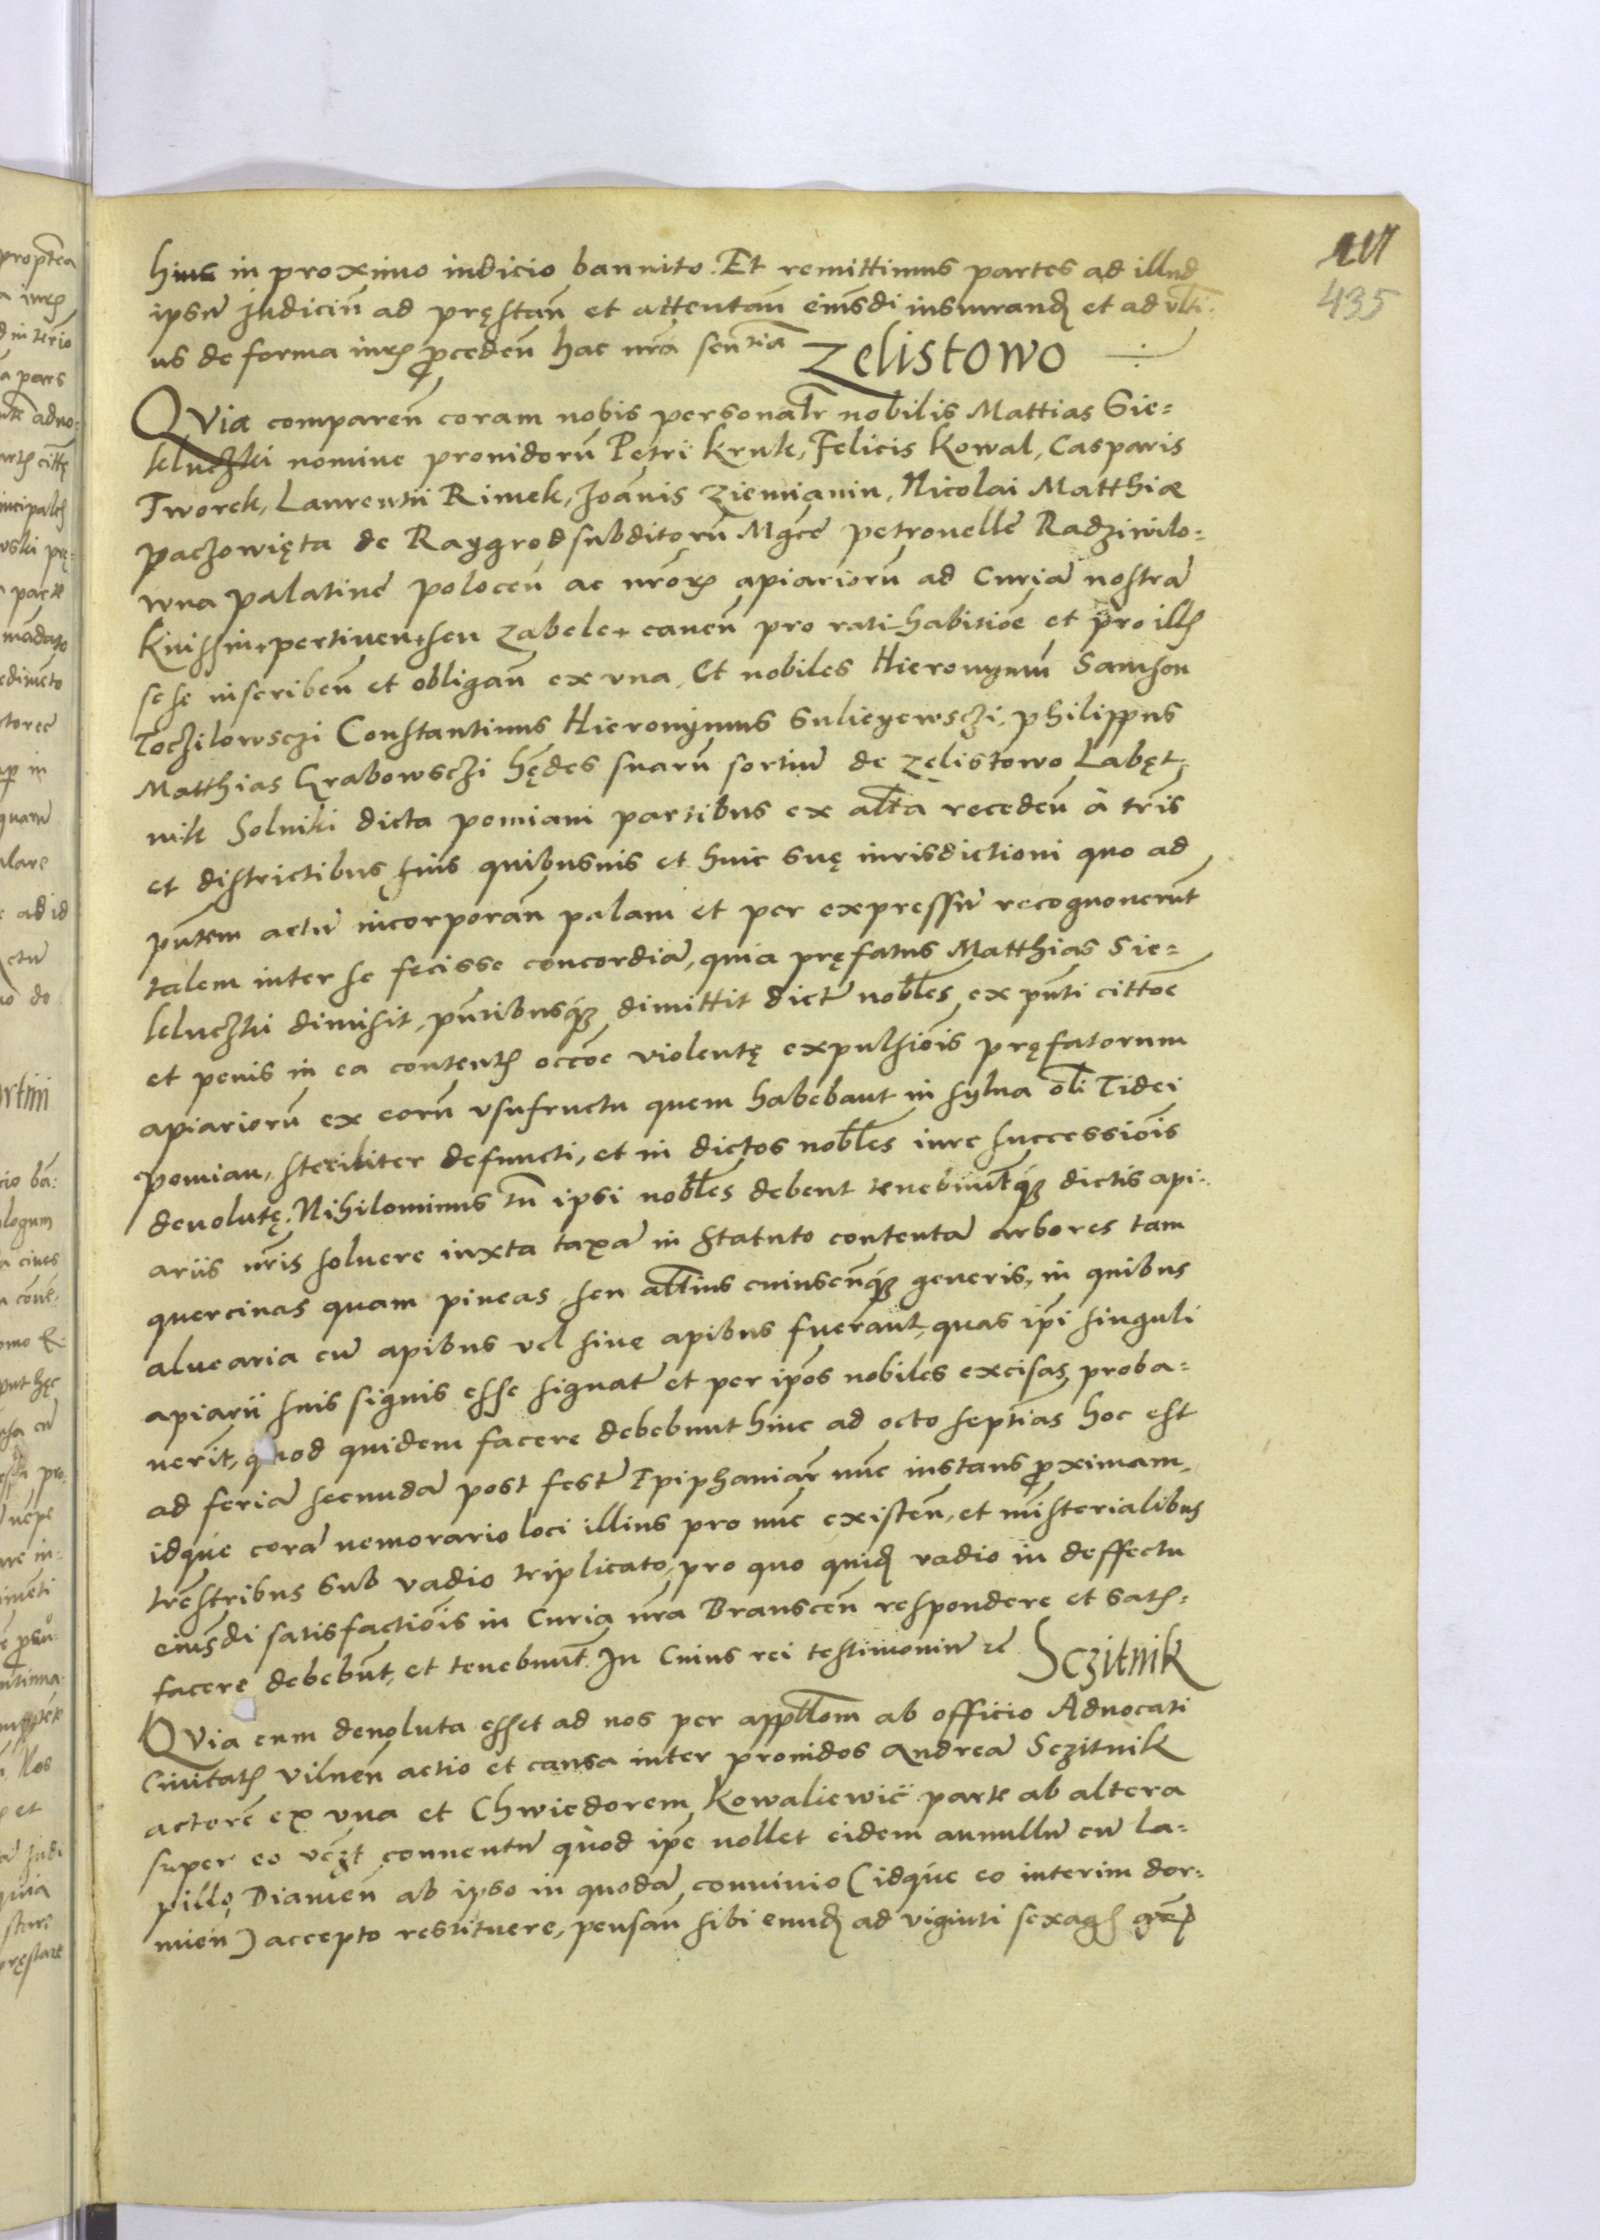 435
hinc in proximo iudicio bannito. Et remittimus partes ad illud
ipsū Iudiciū ad pręstañ et attentañ eiusdi iusiurandȝ et ad vlti:
us de forma iuris ꝓcedeñ hac nrā sententia
Zelistowo
QVia compareñ coram nobis personalr nobilis Mattias Sie=
leluczki nomine prouidorū Petri Kruk, Felicis Kowal, Casparis
Tworek, Laurentii Rimek, Joānis Ziemianin, Nicolai Matthiæ
Paczowięta de Raygrod subditorū Mgcē Petronelle Radziwilo=
wna Palatinē Poloceñ ac nrōrū apiariorū ad Curiā nostrā
Knissin pertineñ seu Zabele caueñ pro rati habitiōe et pro illis
sese inscribeñ et obligañ ex vna, Et nobiles Hieronymū Samson
Toczilowsczi Constantinus Hieronymus Sulieyewsczi, Philippus
Matthias Grabowsczi hęđes suarū sortiū de Zelistowo Labęt=
nik Solniki dicta Pomiani partibus ex altā recedeñ à tris
et districtibus suis quibusuis et huic suę iurisdictioni quo ad
pñtem actū incorporañ palam et per expressū recognouerūt
talem inter se fecisse concordiā, quia pręfatus Matthias Sie=
leluczki dimisit, pñtibusqȝ dimittit dictū nobles ex pñti cittōe
et penis in ea contentis occōe violentę expulsiōis pręfatorum
apiariorū ex eorū vsufructu quem habebant in sylua oli Tidei
Pomian, steriliter defuncti, et in dictos nobles iure successiōis
deuolutę. Nihilominus tñ ipsi nobles debent tenebuntqȝ dictis api=
ariis nris soluere iuxta taxā in statuto contentā arbores tam
quercinas quam pineas, seu altius cuiuscunqȝ generis, in quibus
aluearia cū apibus vel sine apibus fuerant, quas ipi singuli
apiarii suis signis esse signatū et per ipos nobiles excisas, proba=
uerit, quod quidem facere debebunt hinc ad octo septias hoc est
ad feriā secundā post festū Epiphaniarū nūc instans ꝓximam,
idque corā nemorario loci illius pro nūc existeñ, et misterialibus
trēstribus sub vadio triplicato, pro quo quidē vadio in deffectu
eiusdi satisfactiōis in Curia nrā Branscēn respondere et satis=
facere debebūt, et tenebunt. In Cuius rei testimoniū rē
Sczitnik
QVia cum deuoluta esset ad nos per appllōm ab officio Aduocati
Ciuitatis Vilneñ actio et causa inter prouidos Andreā Sczitnik
actorē ex vna et Chwiedorem Kowaliewic parte ab altera
super eo conuentū quod ipe nollet eidem annullū cū la=
pillo Diameñ ab ipso in quodā conuiuio (idque eo interim dor=
mieñ) accepto restituere, pensañ sibi eundē ad viginti sexagȝ